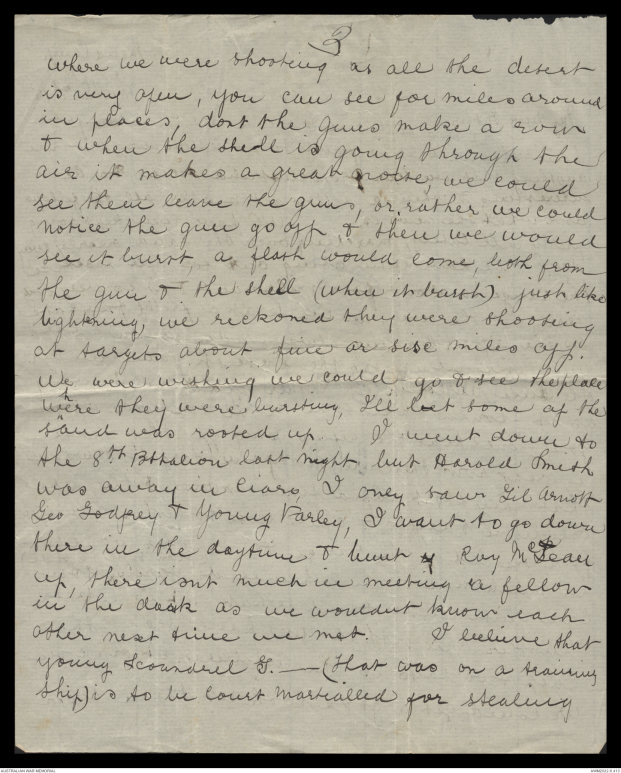 3
where we were shooting as all the desert
is very open, you can see for miles around
in places, dont the guns make a row
& when the shell is going through the
air it makes a great noise, we could
see them leave the guns, or rather we could
notice the gun go off & then we would
see it burst, a flash would come, both from
the gun & the shell (when it bursts) just like
lightning, we reckoned they were shooting
at targets about five or six miles off.
We were wishing we could go & see the place
were they were bursting, I'll bet some of the
sand was rooted up. I went down to
the 8th Bttalion last night but Harold Smith
was away in Ciaro, I only saw Lil Arnott
Geo Godfrey & Young Varley, I want to go down
there in the daytime & hunt Roy McLean
up, there isnt much in meeting a fellow
in the dark as we wouldnt know each
other next time we met. I believe that
young Scoundrel G. — (that was on a training
ship) is to be Court Martialled for stealing
AUSTRALIAN WAR MEMORIAL